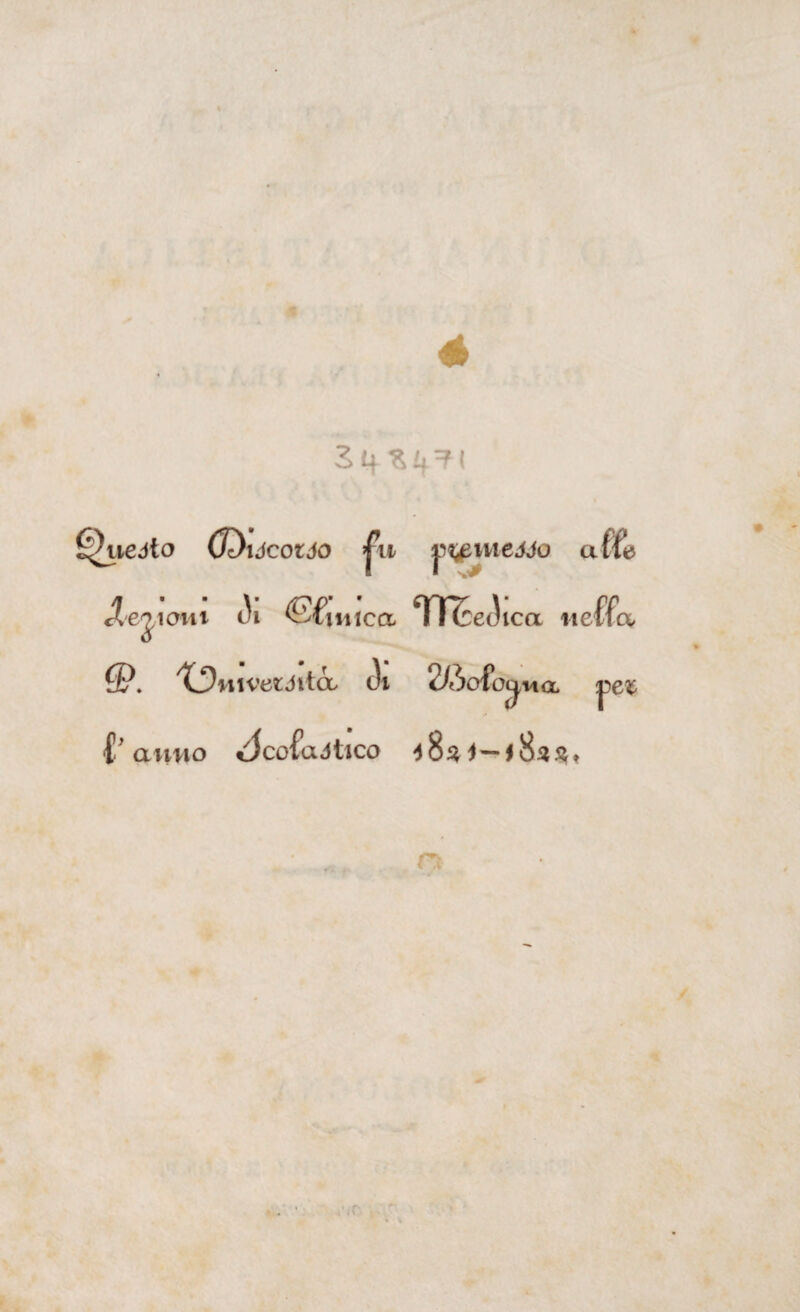 348471
Questo Discorso fu premesso alle
Lezioni di Clinica Medica nella
P. Università di Bologna per
l' anno Scolastico 1821-1822.